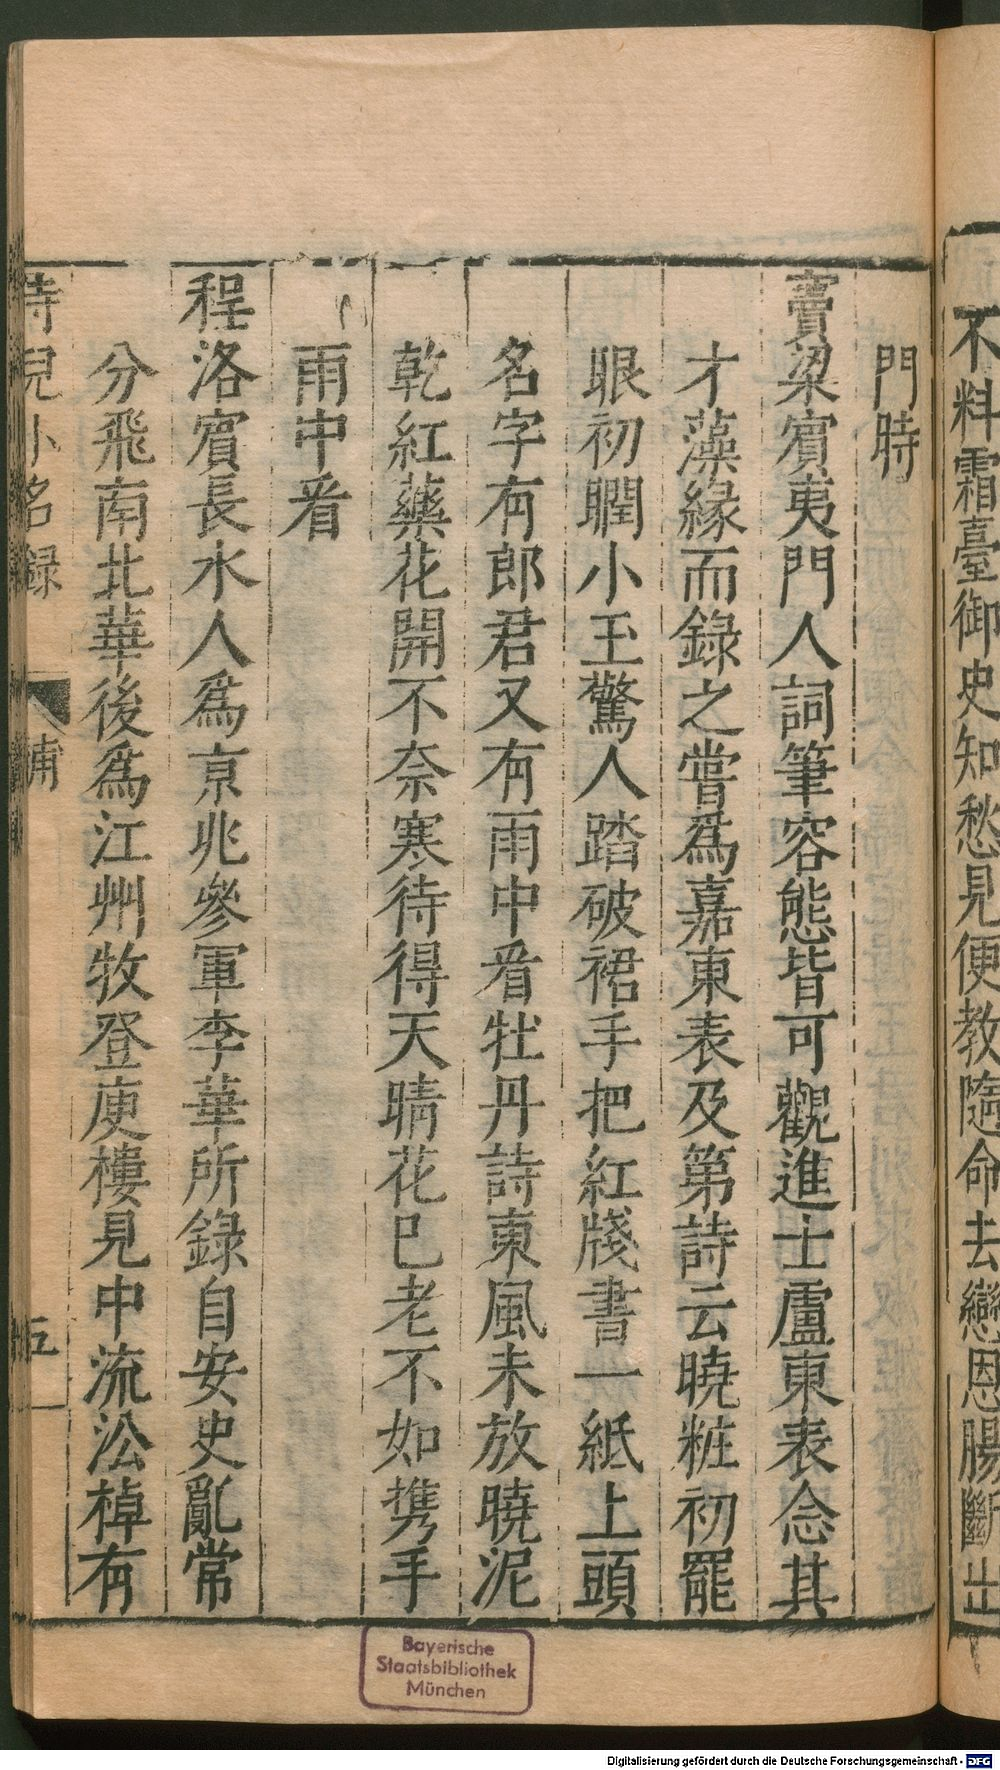 不料霜臺御史知愁見便教隨命去戀恩腸斷出
門時
竇梁賓夷門人詞筆容態皆可觀進士盧東表念其
才藻緣而錄之嘗爲嘉東表及第詩云曉粧初罷
眼初瞤小玉驚人踏破裙手把紅牋書一紙上頭
名字有郎君又有雨中看牡丹詩東風未放曉泥
乾紅藥花開不奈寒待得天晴花已老不如携手
雨中看
程洛賓長水人爲京兆參軍李華所錄自安史亂常
分飛南北華後爲江州牧登庾樓見中流沿棹有
侍兒小名録
補
五
Bayerische
Staatsbibliothek
München
Digitalisierung gefördert durch die Deutsche Forschungsgemeinschaft - DFG